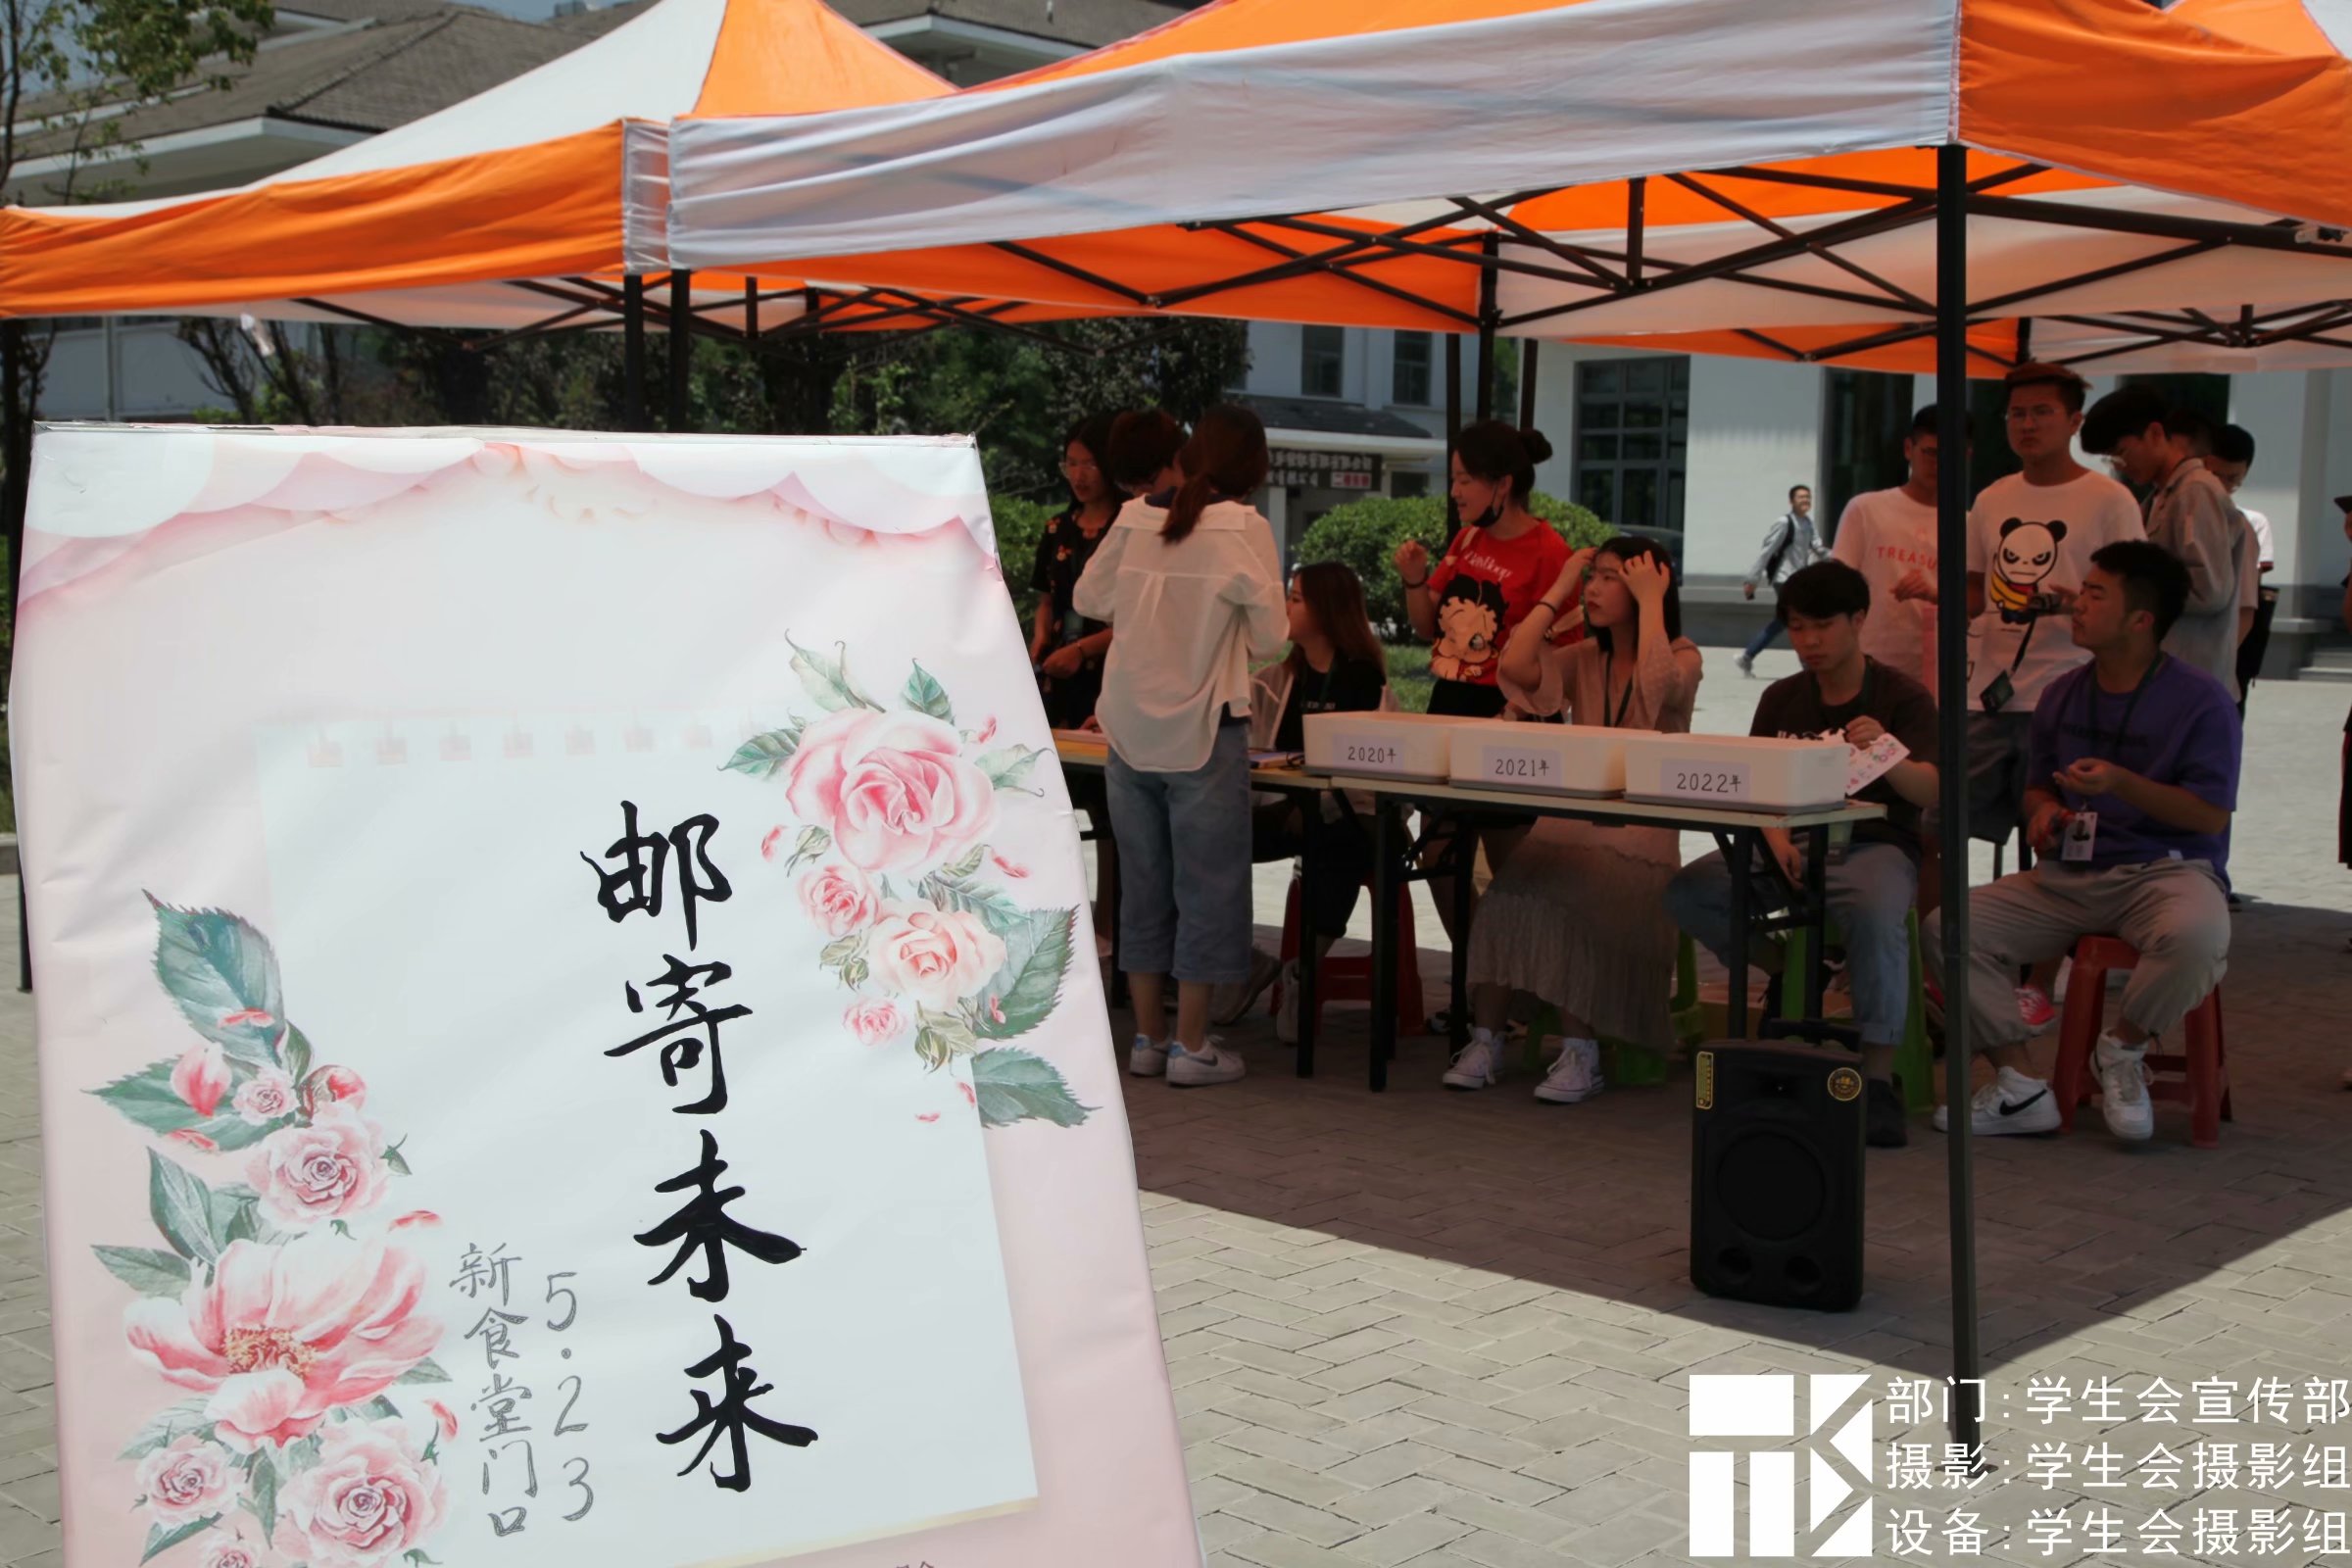 邮寄未来
5.23
新食堂门口
2020年
2021年
2022年
TREASU
部门:学生会宣传部
摄影:学生会摄影组
设备:学生会摄影组